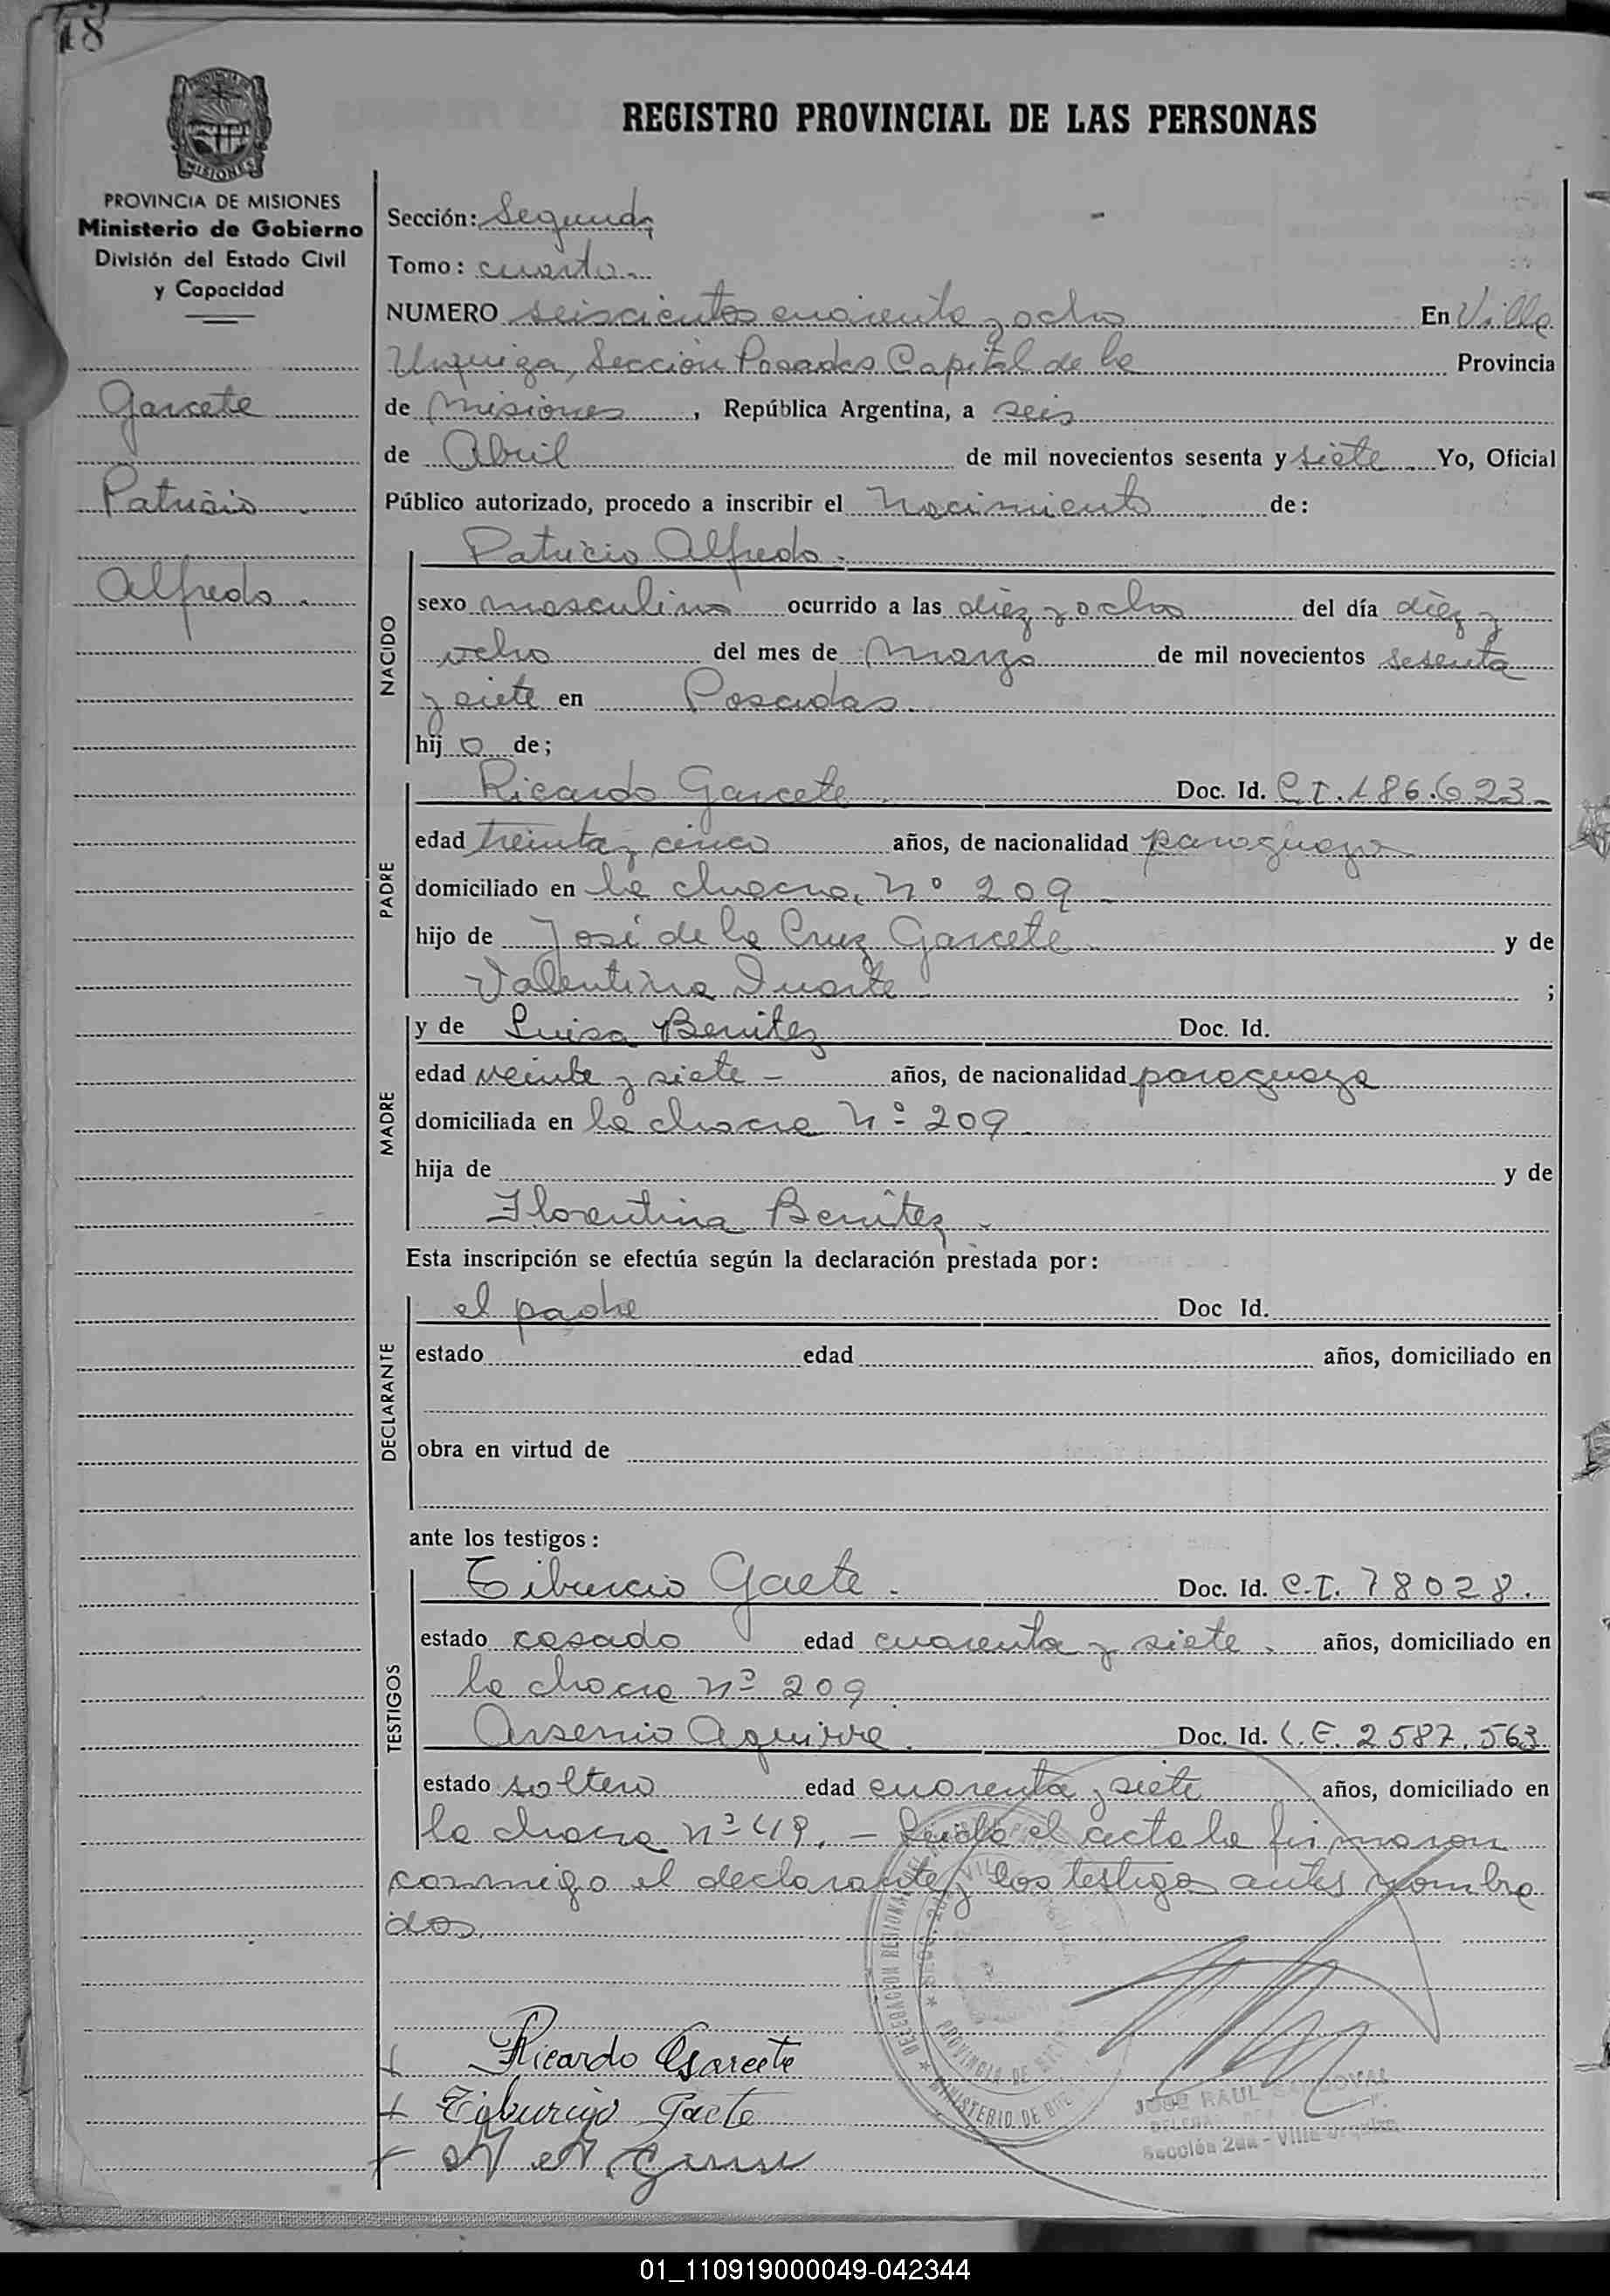 18
MISIONES
PROVINCIA DE MISIONES
Ministerio de Gobierno
División del Estado Civil
y Capacidad
Garcete
Patricio
Alfredo.
REGISTRO PROVINCIAL DE LAS PERSONAS
Sección: Segunda
Tomo: cuarto.-
NUMERO seiscientos cuarenta y ocho En Villa
Urquiza, Sección Posadas Capital de la Provincia
de Misiones, República Argentina, a seis
de Abril de mil novecientos sesenta y siete Yo, Oficial
Público autorizado, procedo a inscribir el nacimiento de:
NACIDO
Patricio Alfredo.-
sexo masculino ocurrido a las diez y ocho del día diez y
ocho del mes de Marzo de mil novecientos sesenta
y siete en Posadas.
hijo de;
PADRE
Ricardo Garcete Doc. Id. C.I. 186.623.-
edad treinta y cinco años, de nacionalidad paraguaya
domiciliado en la chacra, nº 209 -
hijo de José de la Cruz Garcete y de
Valentina Duarte ;
MADRE
y de Luisa Benitez Doc. Id.
edad veinte y siete - años, de nacionalidad paraguaya
domiciliada en la chacra nº 209
hija de y de
Florentina Benitez.
Esta inscripción se efectúa según la declaración prestada por:
DECLARANTE
el padre Doc Id.
estado edad años, domiciliado en
obra en virtud de
ante los testigos:
TESTIGOS
Tiburcio Gaete. Doc. Id. C.I. 78028.
estado casado edad cuarenta y siete. años, domiciliado en
la chacra nº 209.
Arsenio Aguirre. Doc. Id. L.E. 2587.563
estado soltero edad cuarenta y siete años, domiciliado en
la chacra nº 49. - Leída el acta la firmaron
conmigo el declarante y los testigos antes nombra
dos.
DELEGACION REGIONAL
PROVINCIA DE
MINISTERIO DE
Ricardo Garcete
Tiburcio Gaete
JOSE RAUL SANDOVAL
Sección 2da - Villa Urquiza
01_110919000049-042344